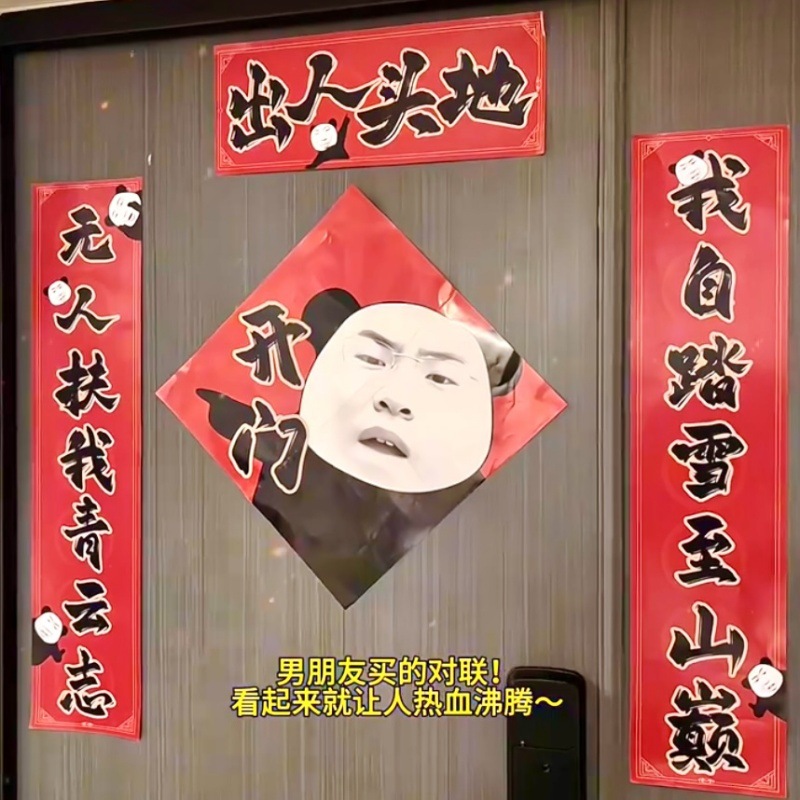 出人头地
无人扶我青云志
我自踏雪至山巅
开门
男朋友买的对联！
看起来就让人热血沸腾～